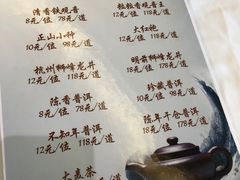 清香铁观音
8元/位 78元/道
粒粒香观音王
12元/位 118元/道
正山小种
10元/位 98元/道
大红袍
12元/位 118元/道
杭州狮峰龙井
12元/位 118元/道
明前狮峰龙井
18元/位 178元/道
陈香普洱
8元/位 78元/道
珍藏普洱
18元/位 118元/道
不知年普洱
12元/位 118元/道
陈年干仓普洱
18元/位 178元/道
大麦茶